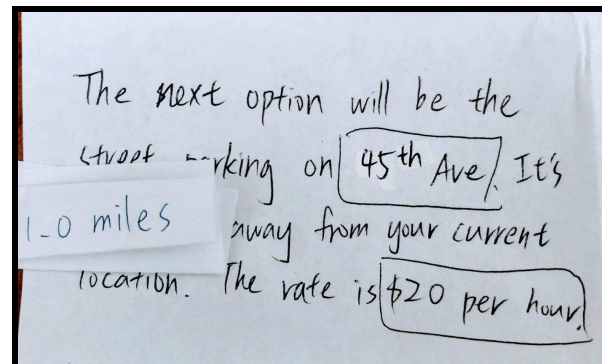 The next option will be the
street parking on 45th Ave. It's
1.0 miles away from your current
location. The rate is $20 per hour.